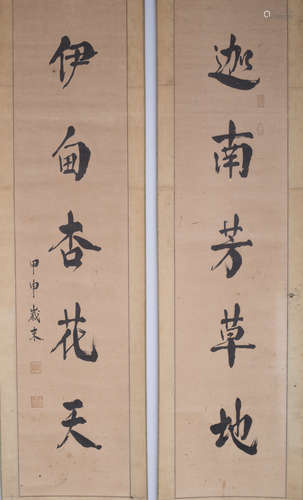 迦南芳草地
伊甸杏花天
甲申歲末